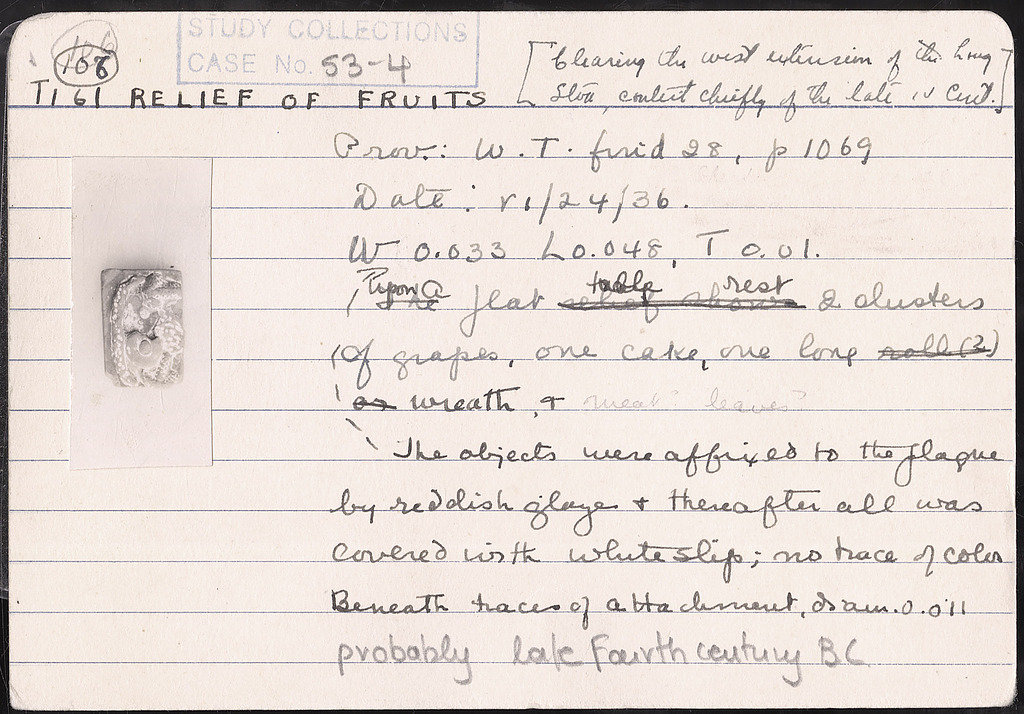 STUDY COLLECTIONS
CASE No. 53-4
106
T161 RELIEF OF FRUITS
[Clearing the west extension of the Long
Stoa, context chiefly of the late IV Cent.]
Prov.: W.T. find 28, p 1069
Date: VI/24/36.
W 0.033 L 0.048, T 0.01.
Upon a
The flat relief shows 2 clusters
table rest
of grapes, one cake, one long roll (?)
or wreath, + meat? leaves?
The objects were affixed to the plaque
by reddish glaze + thereafter all was
covered with white slip; no trace of color
Beneath traces of attachment, diam. 0.011
probably late Fourth century BC